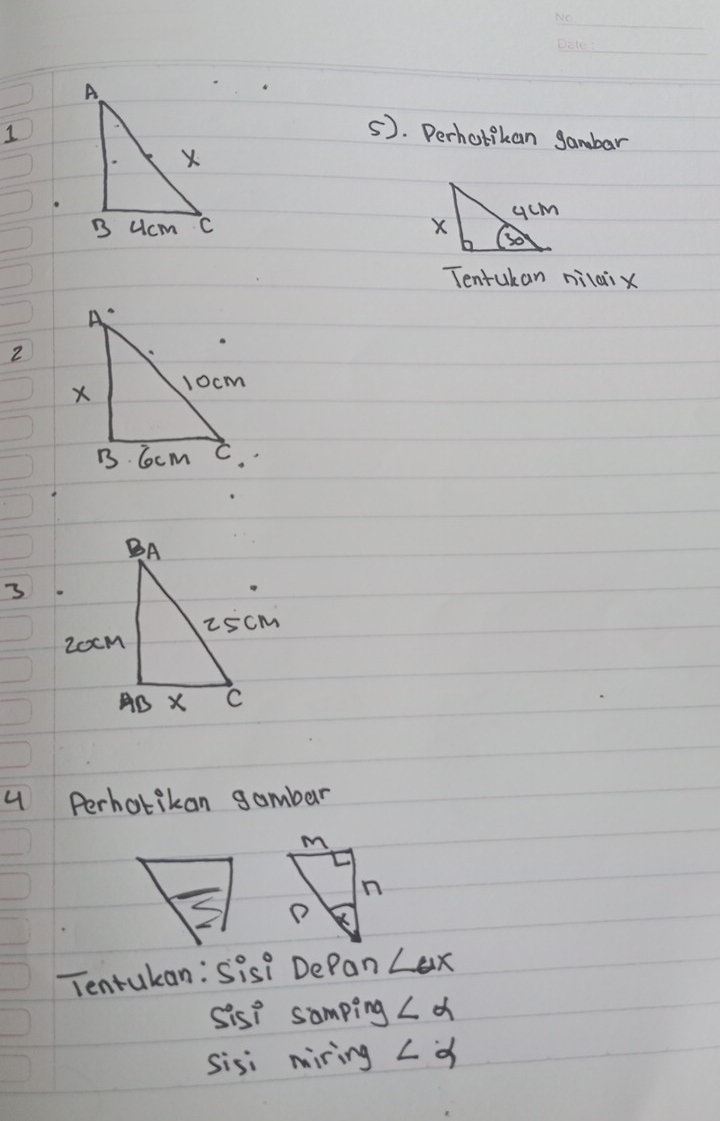 No.
Date:
1
A
X
B 4cm C
2
A
X
10cm
B 6cm C
3
BA
20cm
25cm
AB X C
4 Perhatikan gambar
m
n
P
α
Tentukan: Sisi Depan ∠αx
Sisi samping ∠ α
Sisi miring ∠ α
5). Perhatikan gambar
4cm
X
30
Tentukan nilai x